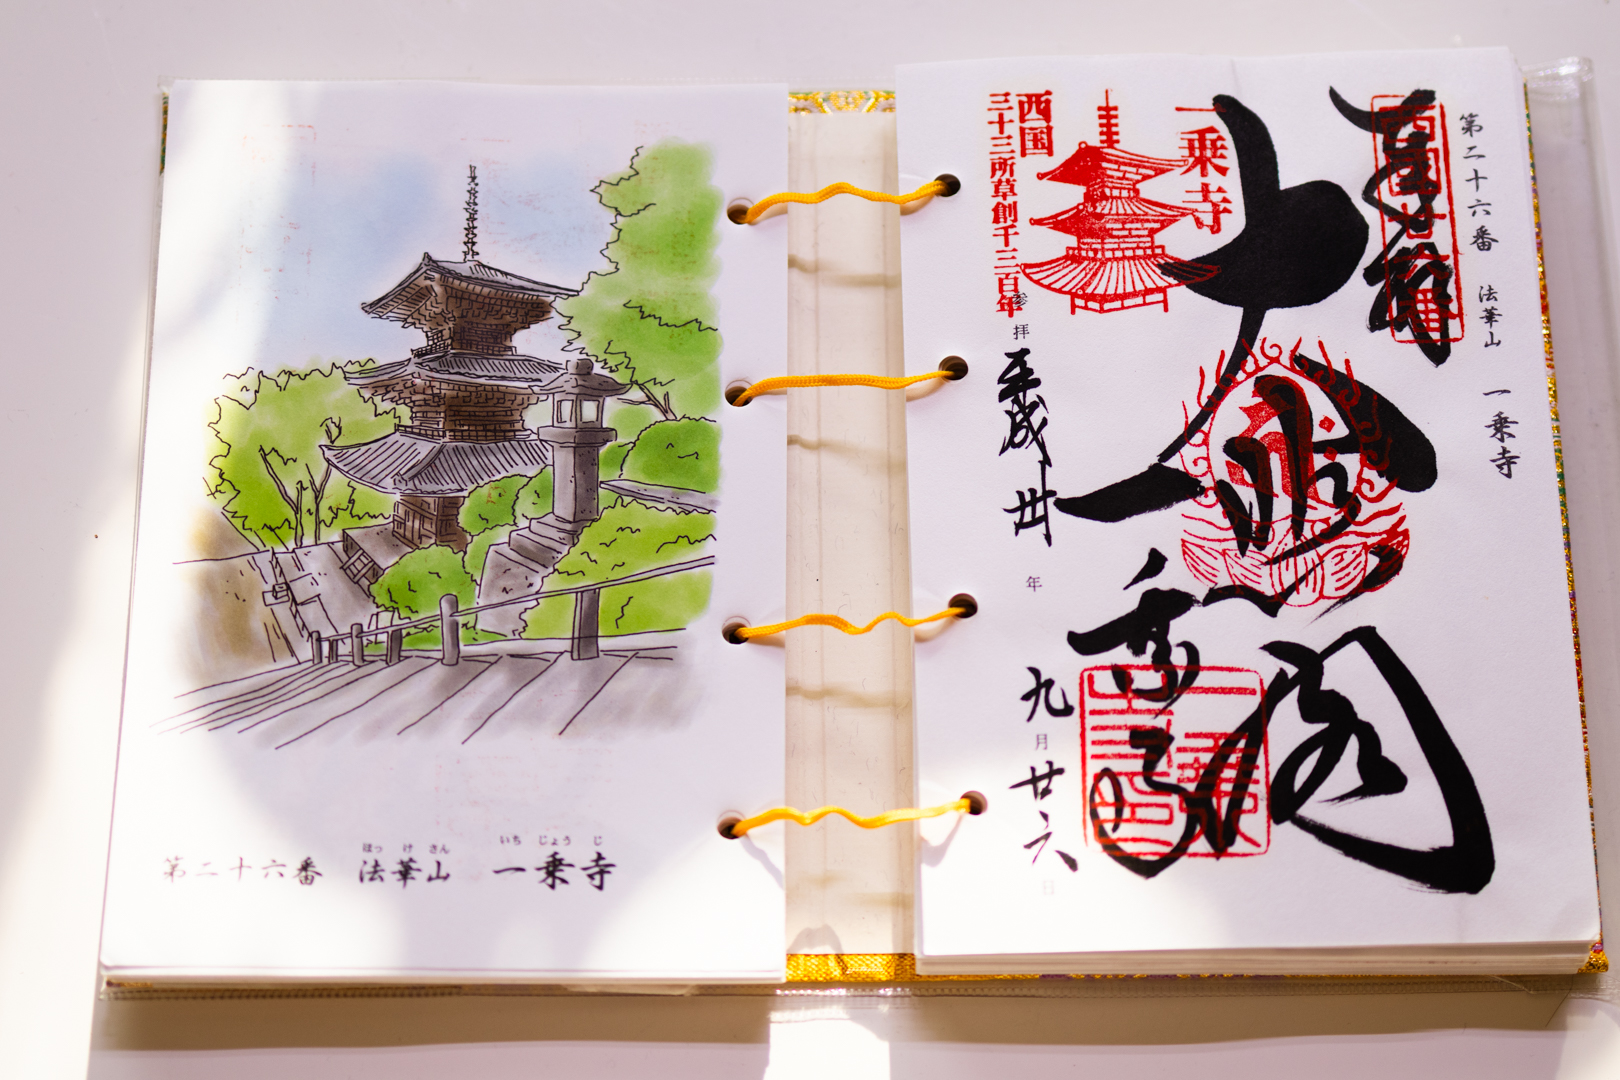 ほっ け さん
いち じょう じ
第二十六番 法華山 一乗寺
第二十六番 法華山 一乗寺
奉拝
西国二十六番
一乗寺
西国
三十三所草創千三百年
大悲閣
一乗寺
参拝
平成卅年
九月廿六日